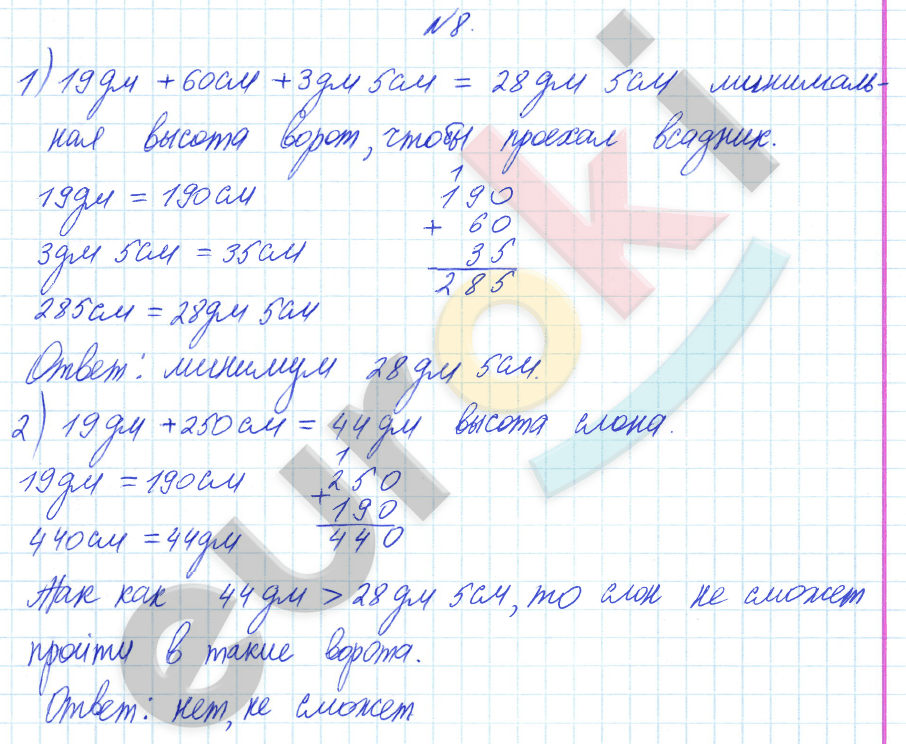 №8.
1) 19дм + 60см + 3дм 5см = 28дм 5см минималь-
ная высота ворот, чтобы проехал всадник.
19дм = 190см
3дм 5см = 35см
285см = 28дм 5см
1
190
+ 60
35
285
Ответ: минимум 28дм 5см.
2) 19дм + 250см = 44дм высота слона.
19дм = 190см
440см = 44дм
1
250
+ 190
440
Так как 44дм > 28дм 5см, то слон не сможет
пройти в такие ворота.
Ответ: нет, не сможет
euroki